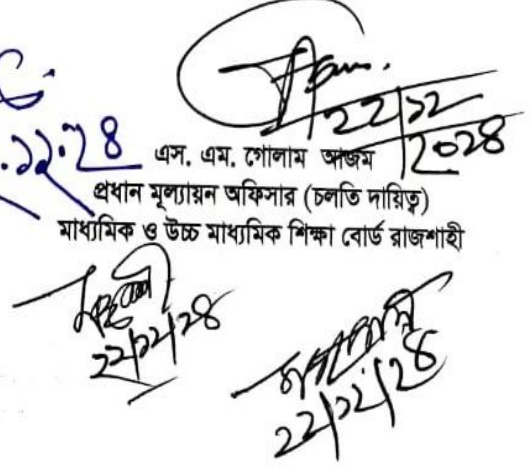 ২২/১২
২০২৪
.১২.২৪
এস. এম. গোলাম আজম
প্রধান মূল্যায়ন অফিসার (চলতি দায়িত্ব)
মাধ্যমিক ও উচ্চ মাধ্যমিক শিক্ষা বোর্ড রাজশাহী
২২/১২/২৪
২২/১২/২৪